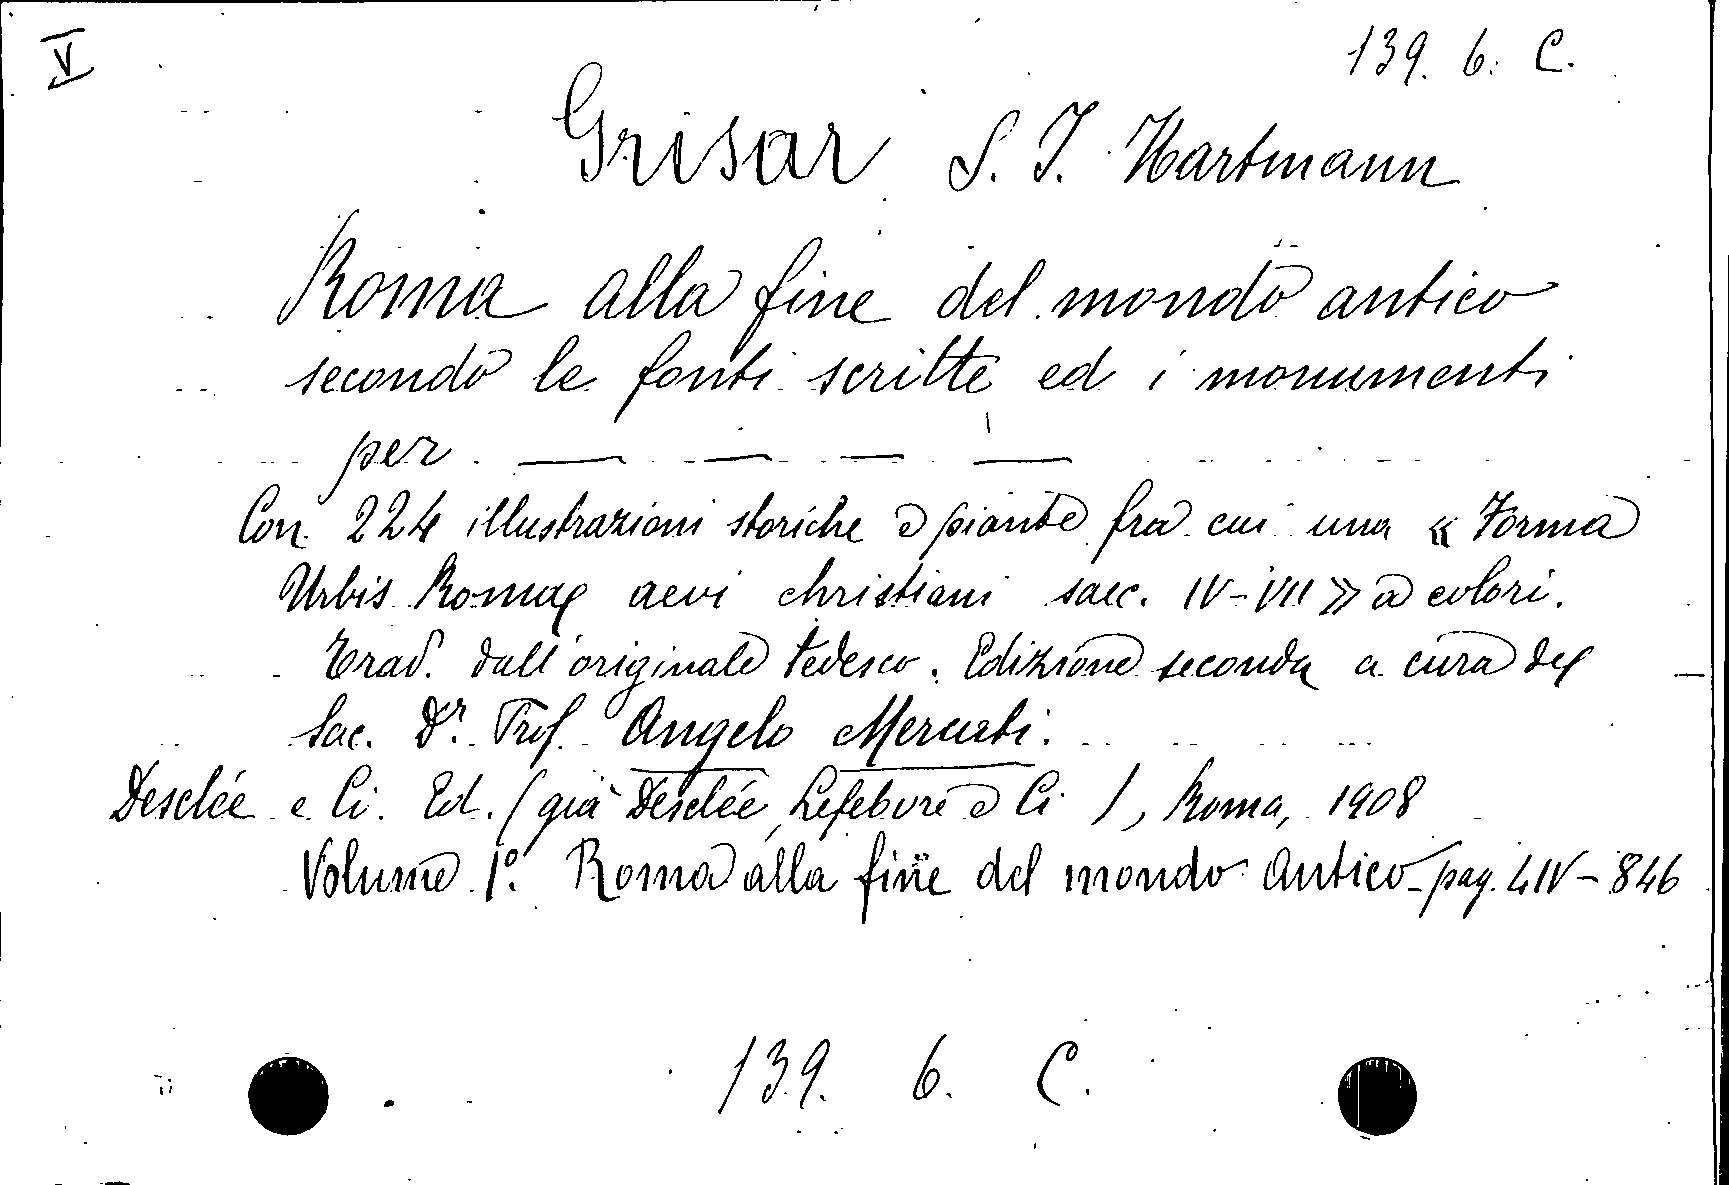 V
139. 6. C.
Grisar S. J. Hartmann
Roma alla fine del mondo antico
secondo le fonti scritte ed i monumenti
per — — — —
Con 224 illustrazioni storiche e piante fra cui una « Forma
Urbis Romae aevi christiani saec. IV-VII » a colori.
Trad. dall'originale tedesco. Edizione seconda a cura del
Sac. Dr. Prof. Angelo Mercati.
Desclée e Ci. Ed. (già Desclée, Lefebvre e Ci ), Roma, 1908
Volume 1º. Roma alla fine del mondo antico - pag. LIV - 846
139. 6. C.